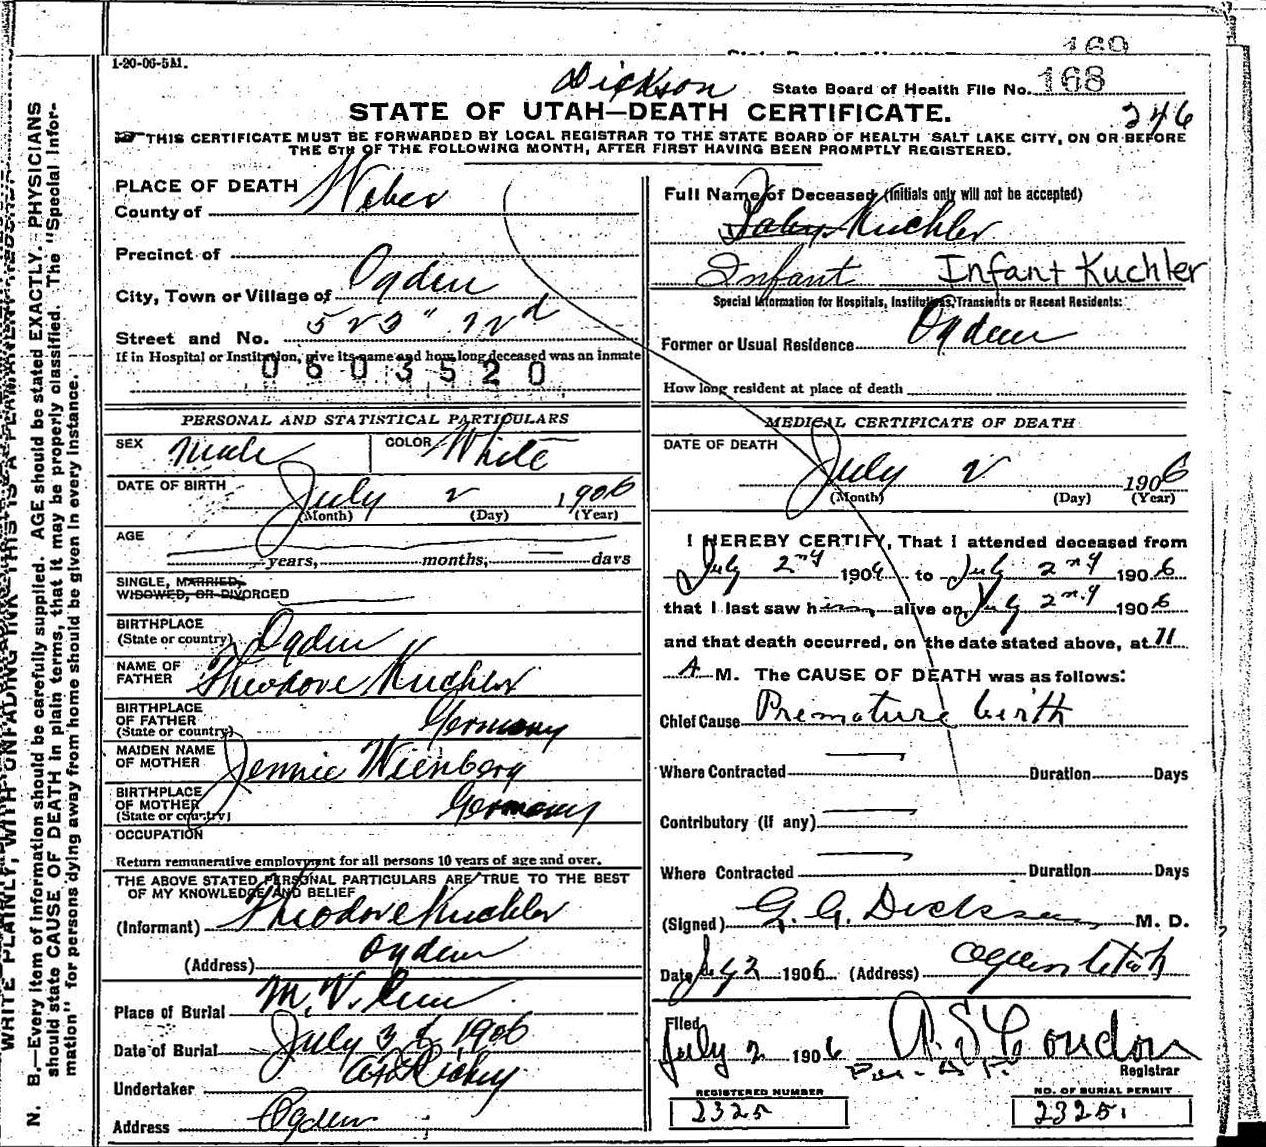 169
1-20-06-5M.
Dickson
State Board of Health File No. 168
STATE OF UTAH—DEATH CERTIFICATE.
246
THIS CERTIFICATE MUST BE FORWARDED BY LOCAL REGISTRAR TO THE STATE BOARD OF HEALTH SALT LAKE CITY, ON OR BEFORE
THE 5TH OF THE FOLLOWING MONTH, AFTER FIRST HAVING BEEN PROMPTLY REGISTERED.
PLACE OF DEATH
County of Weber
Precinct of
City, Town or Village of Ogden
Street and No. 523 22nd
If in Hospital or Institution, give its name and how long deceased was an inmate
0603520
PERSONAL AND STATISTICAL PARTICULARS
SEX Male COLOR White
DATE OF BIRTH July 2 1906
(Month) (Day) (Year)
AGE
years, months, days
SINGLE, MARRIED,
WIDOWED, OR DIVORCED
BIRTHPLACE
(State or country) Ogden
NAME OF
FATHER Theodore Kuchler
BIRTHPLACE
OF FATHER
(State or country) Germany
MAIDEN NAME
OF MOTHER Jennie Wienberg
BIRTHPLACE
OF MOTHER
(State or country) Germany
OCCUPATION
Return remunerative employment for all persons 10 years of age and over.
THE ABOVE STATED PERSONAL PARTICULARS ARE TRUE TO THE BEST
OF MY KNOWLEDGE AND BELIEF
(Informant) Theodore Kuchler
(Address) Ogden
Place of Burial
Date of Burial July 3 1906
Undertaker
Address Ogden
Full Name of Deceased (Initials only will not be accepted)
Baby Kuchler
Infant Infant Kuchler
Special Information for Hospitals, Institutions, Transients or Recent Residents:
Former or Usual Residence Ogden
How long resident at place of death
MEDICAL CERTIFICATE OF DEATH
DATE OF DEATH
July 2 1906
(Month) (Day) (Year)
I HEREBY CERTIFY, That I attended deceased from
July 2nd 1906 to July 2nd 1906
that I last saw him alive on July 2nd 1906
and that death occurred, on the date stated above, at 11
A M. The CAUSE OF DEATH was as follows:
Chief Cause Premature birth
Where Contracted Duration Days
Contributory (if any)
Where Contracted Duration Days
(Signed) G. G. Dickson M. D.
Date July 2 1906 (Address) Ogden Utah
Filed
July 2 1906 A. S. Condon
Registrar
REGISTERED NUMBER
2325
NO. OF BURIAL PERMIT
2325
N. B.—Every item of information should be carefully supplied. AGE should be stated EXACTLY. PHYSICIANS
should state CAUSE OF DEATH in plain terms, that it may be properly classified. The "Special Infor-
mation" for persons dying away from home should be given in every instance.